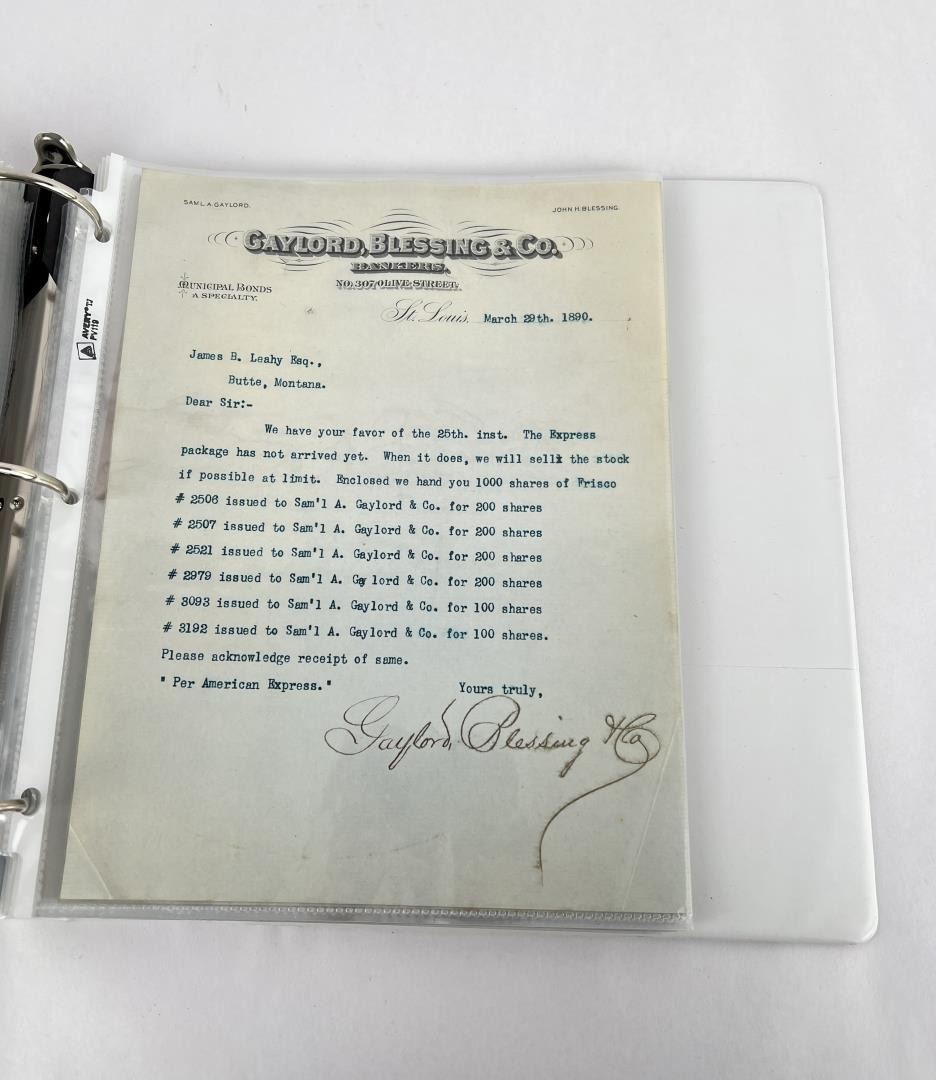 SAML. A. GAYLORD.
JOHN H. BLESSING.
GAYLORD, BLESSING & CO.
BANKERS.
NO. 307 OLIVE STREET.
MUNICIPAL BONDS
A SPECIALTY.
St. Louis, March 29th. 1890.
James B. Leahy Esq.,
Butte, Montana.
Dear Sir:-
We have your favor of the 25th. inst. The Express
package has not arrived yet. When it does, we will sell the stock
if possible at limit. Enclosed we hand you 1000 shares of Frisco
# 2506 issued to Sam'l A. Gaylord & Co. for 200 shares
# 2507 issued to Sam'l A. Gaylord & Co. for 200 shares
# 2521 issued to Sam'l A. Gaylord & Co. for 200 shares
# 2979 issued to Sam'l A. Gay lord & Co. for 200 shares
# 3093 issued to Sam'l A. Gaylord & Co. for 100 shares
# 3192 issued to Sam'l A. Gaylord & Co. for 100 shares.
Please acknowledge receipt of same.
" Per American Express."
Yours truly,
Gaylord, Blessing & Co
AVERY®
PV119